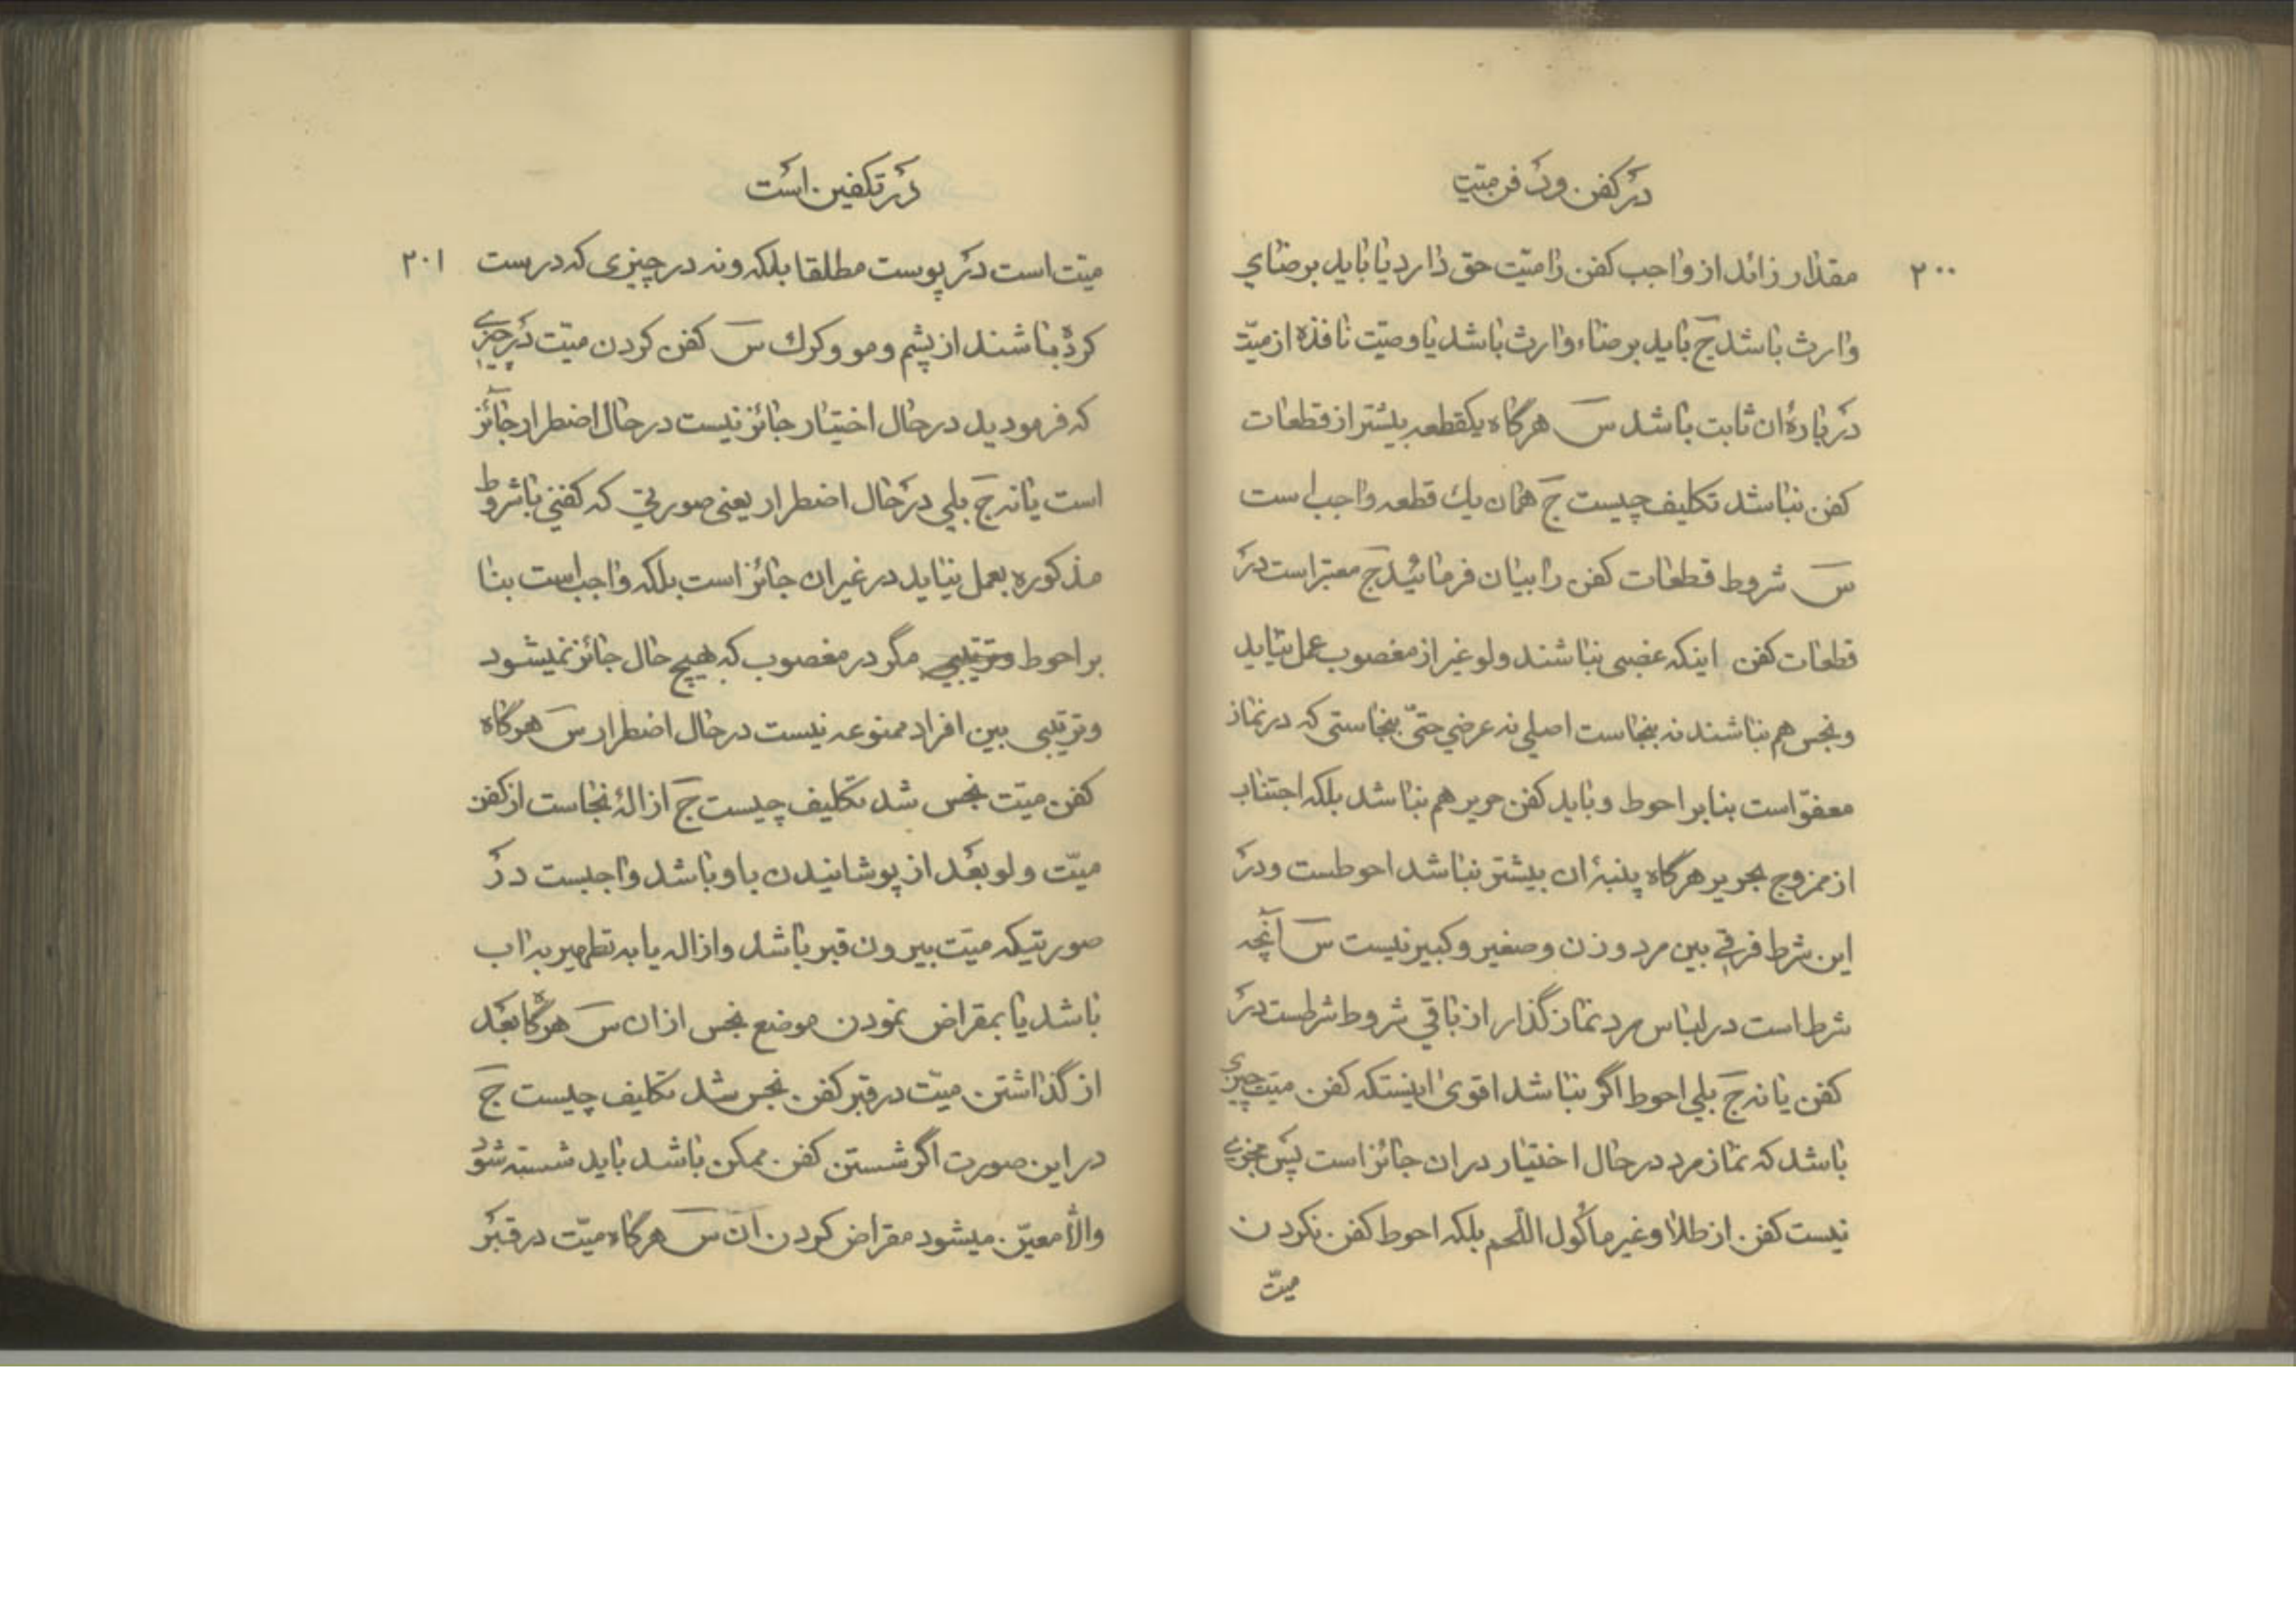 در کفن ودفن میّت
۲۰۰
مقدار زائد از واجب کفن را میّت حق دارد یا باید برضای
وارث باشد ج باید برضاء وارث باشد یا وصیّت نافذه از میّت
در بارهٔ ان ثابت باشد س هرگاه یکقطعه بیشتر از قطعات
کفن نباشد تکلیف چیست ج همان یك قطعه واجب است
س شروط قطعات کفن را بیان فرمائید ج معتبر است در
قطعات کفن اینکه غصبی نباشند ولو غیر از مغصوب عمل نیاید
ونجس هم نباشند نه بنجاست اصلی نه عرضی حتّی بنجاستی که در نماز
معفوّ است بنابر احوط وباید کفن حریر هم نباشد بلکه اجتناب
از ممزوج بحریر هرگاه پنبهٔ ان بیشتر نباشد احوطست ودر
این شرط فرقی بین مرد وزن وصغیر وکبیر نیست س آنچه
شرط است در لباس مرد نماز گذار از باقی شروط شرطست در
کفن یا نه ج بلی احوط اگر نباشد اقوی اینستکه کفن میّت چیزی
باشد که نماز مرد در حال اختیار در ان جائز است پس مجزی
نیست کفن از طلا وغیر ماکول اللّحم بلکه احوط کفن نکردن
میّت
در تکفین است
۲۰۱
میّت است در پوست مطلقا بلکه ونه در چیزی که درست
کرده باشند از پشم ومو وکرك س کفن کردن میّت در چیزی
که فرمودید در حال اختیار جائز نیست در حال اضطرار جائز
است یا نه ج بلی در حال اضطرار یعنی صورتی که کفنی باشروط
مذکوره بعمل نیاید در غیر ان جائز است بلکه واجب است بنا
بر احوط وترتیبی مگر در مغصوب که بهیچ حال جائز نمیشود
وترتیبی بین افراد ممنوعه نیست در حال اضطرار س هرگاه
کفن میّت نجس شد تکلیف چیست ج ازالهٔ نجاست از کفن
میّت ولو بعد از پوشانیدن باو باشد واجبست در
صورتیکه میّت بیرون قبر باشد وازاله یا به تطهیر به اب
باشد یا بمقراض نمودن موضع نجس از ان س هرگاه بعد
از گذاشتن میّت در قبر کفن نجس شد تکلیف چیست ج
در این صورت اگر شستن کفن ممکن باشد باید شسته شود
والّا معیّن میشود مقراض کردن ان س هرگاه میّت در قبر